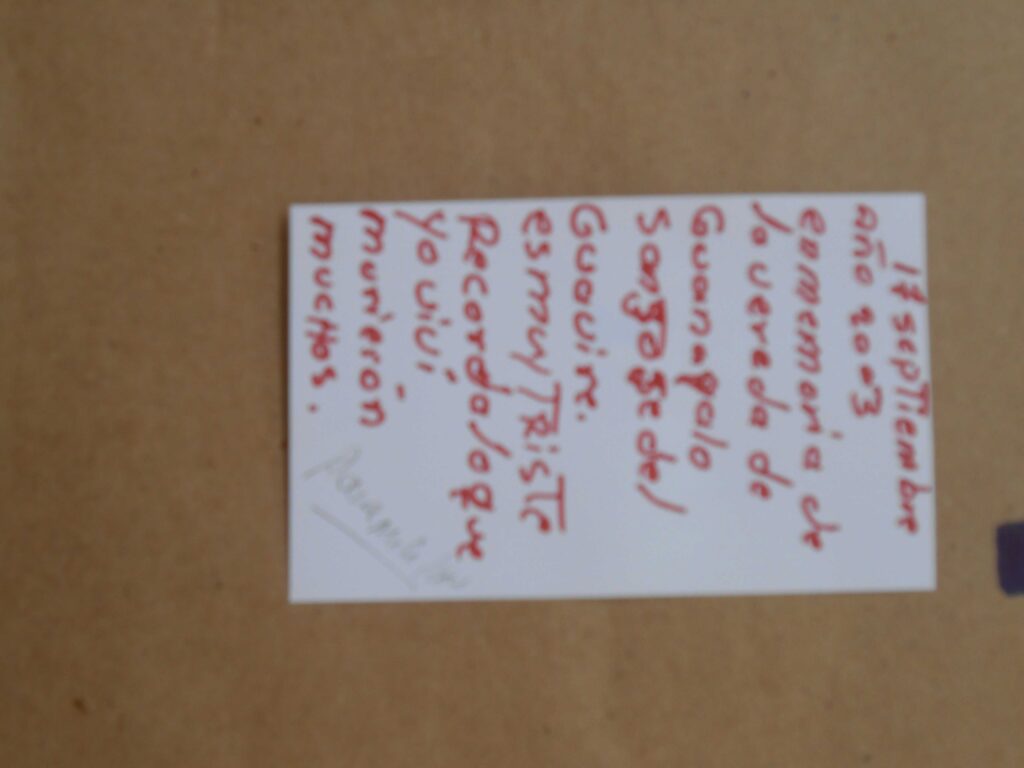 17 septiembre
Año 2003
enmemoria de
la vereda de
Guanapalo
Sanjosedel
Guavire.
esmuyTRISTe
Recordaloque
Yo viví
murierón
mucHos.